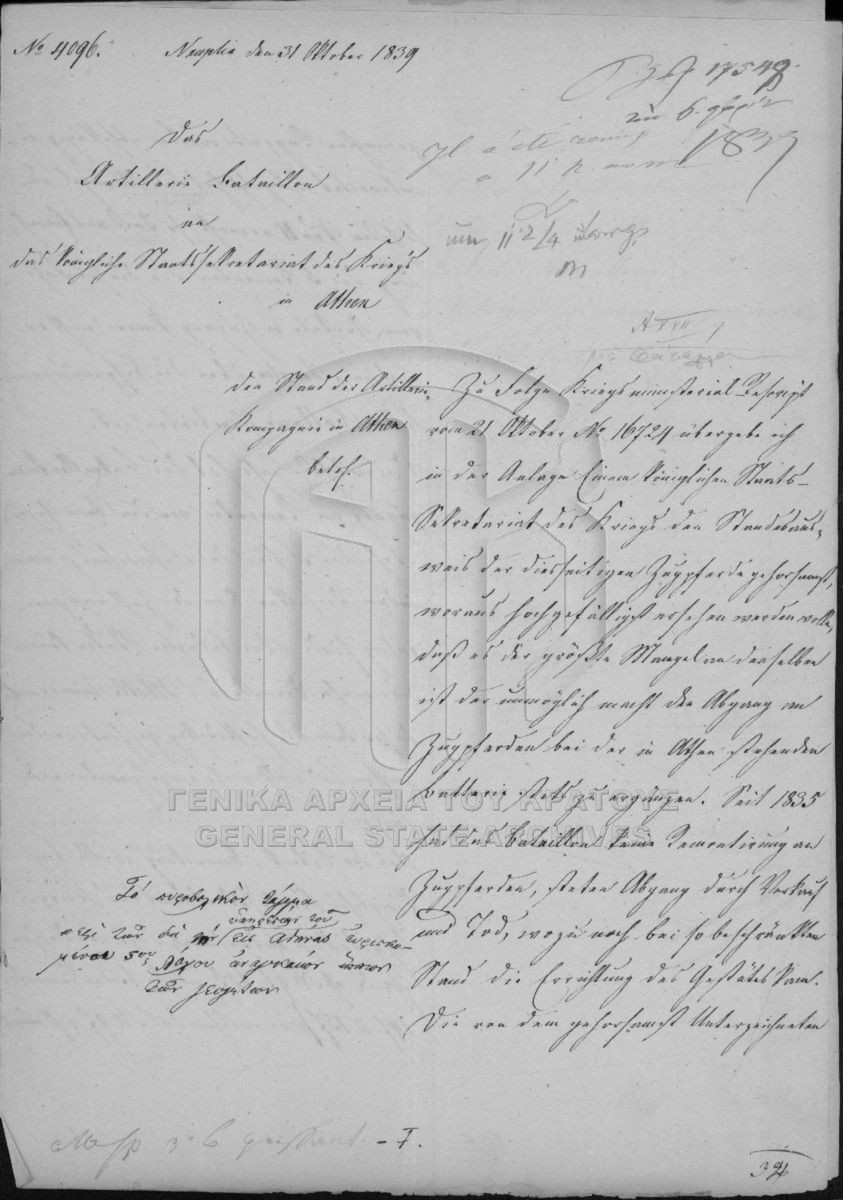 No 4096. Nauplia den 31 Oktober 1839
17549.
1839
Das
Artillerie Bataillon
an
das königliche Staatssekretariat des Kriegs
in Athen
11 2/4
den Stand der Artillerie-
Kompagnie in Athen
betrf.
Zu Folge Kriegsministerial Rescript
vom 21 Oktober No 16724 übergebe ich
in der Anlage Einem königlichen Staats-
Sekretariat des Kriegs den Standesaus-
weis der diesseitigen Zugpferde gehorsamst,
woraus hochgefälligst ersehen werden wolle,
daß es der größte Mangel an denselben
ist der unmöglich macht den Abgang an
Zugpferden bei der in Athen stehenden
Batterie stets zu ergänzen. Seit 1835
hat das Bataillon keine Remontirung an
Zugpferden, steten Abgang durch Verkauf
und Tod, wozu noch bei so beschränktem
Stand die Errichtung des Gestütes kam.
Die von dem gehorsamst Unterzeichneten
Τό πυροβολικὸν τάγμα
ὑπηρεσίαν τοῦ
περὶ τῶν διὰ τὴν εἰς Ἀθήνας εὑρισκο-
μένου 5ου λόχου ἀναγκαίων ἵππων
τῶν ζευγιτῶν
ΓΕΝΙΚΑ ΑΡΧΕΙΑ ΤΟΥ ΚΡΑΤΟΥΣ
GENERAL STATE ARCHIVES